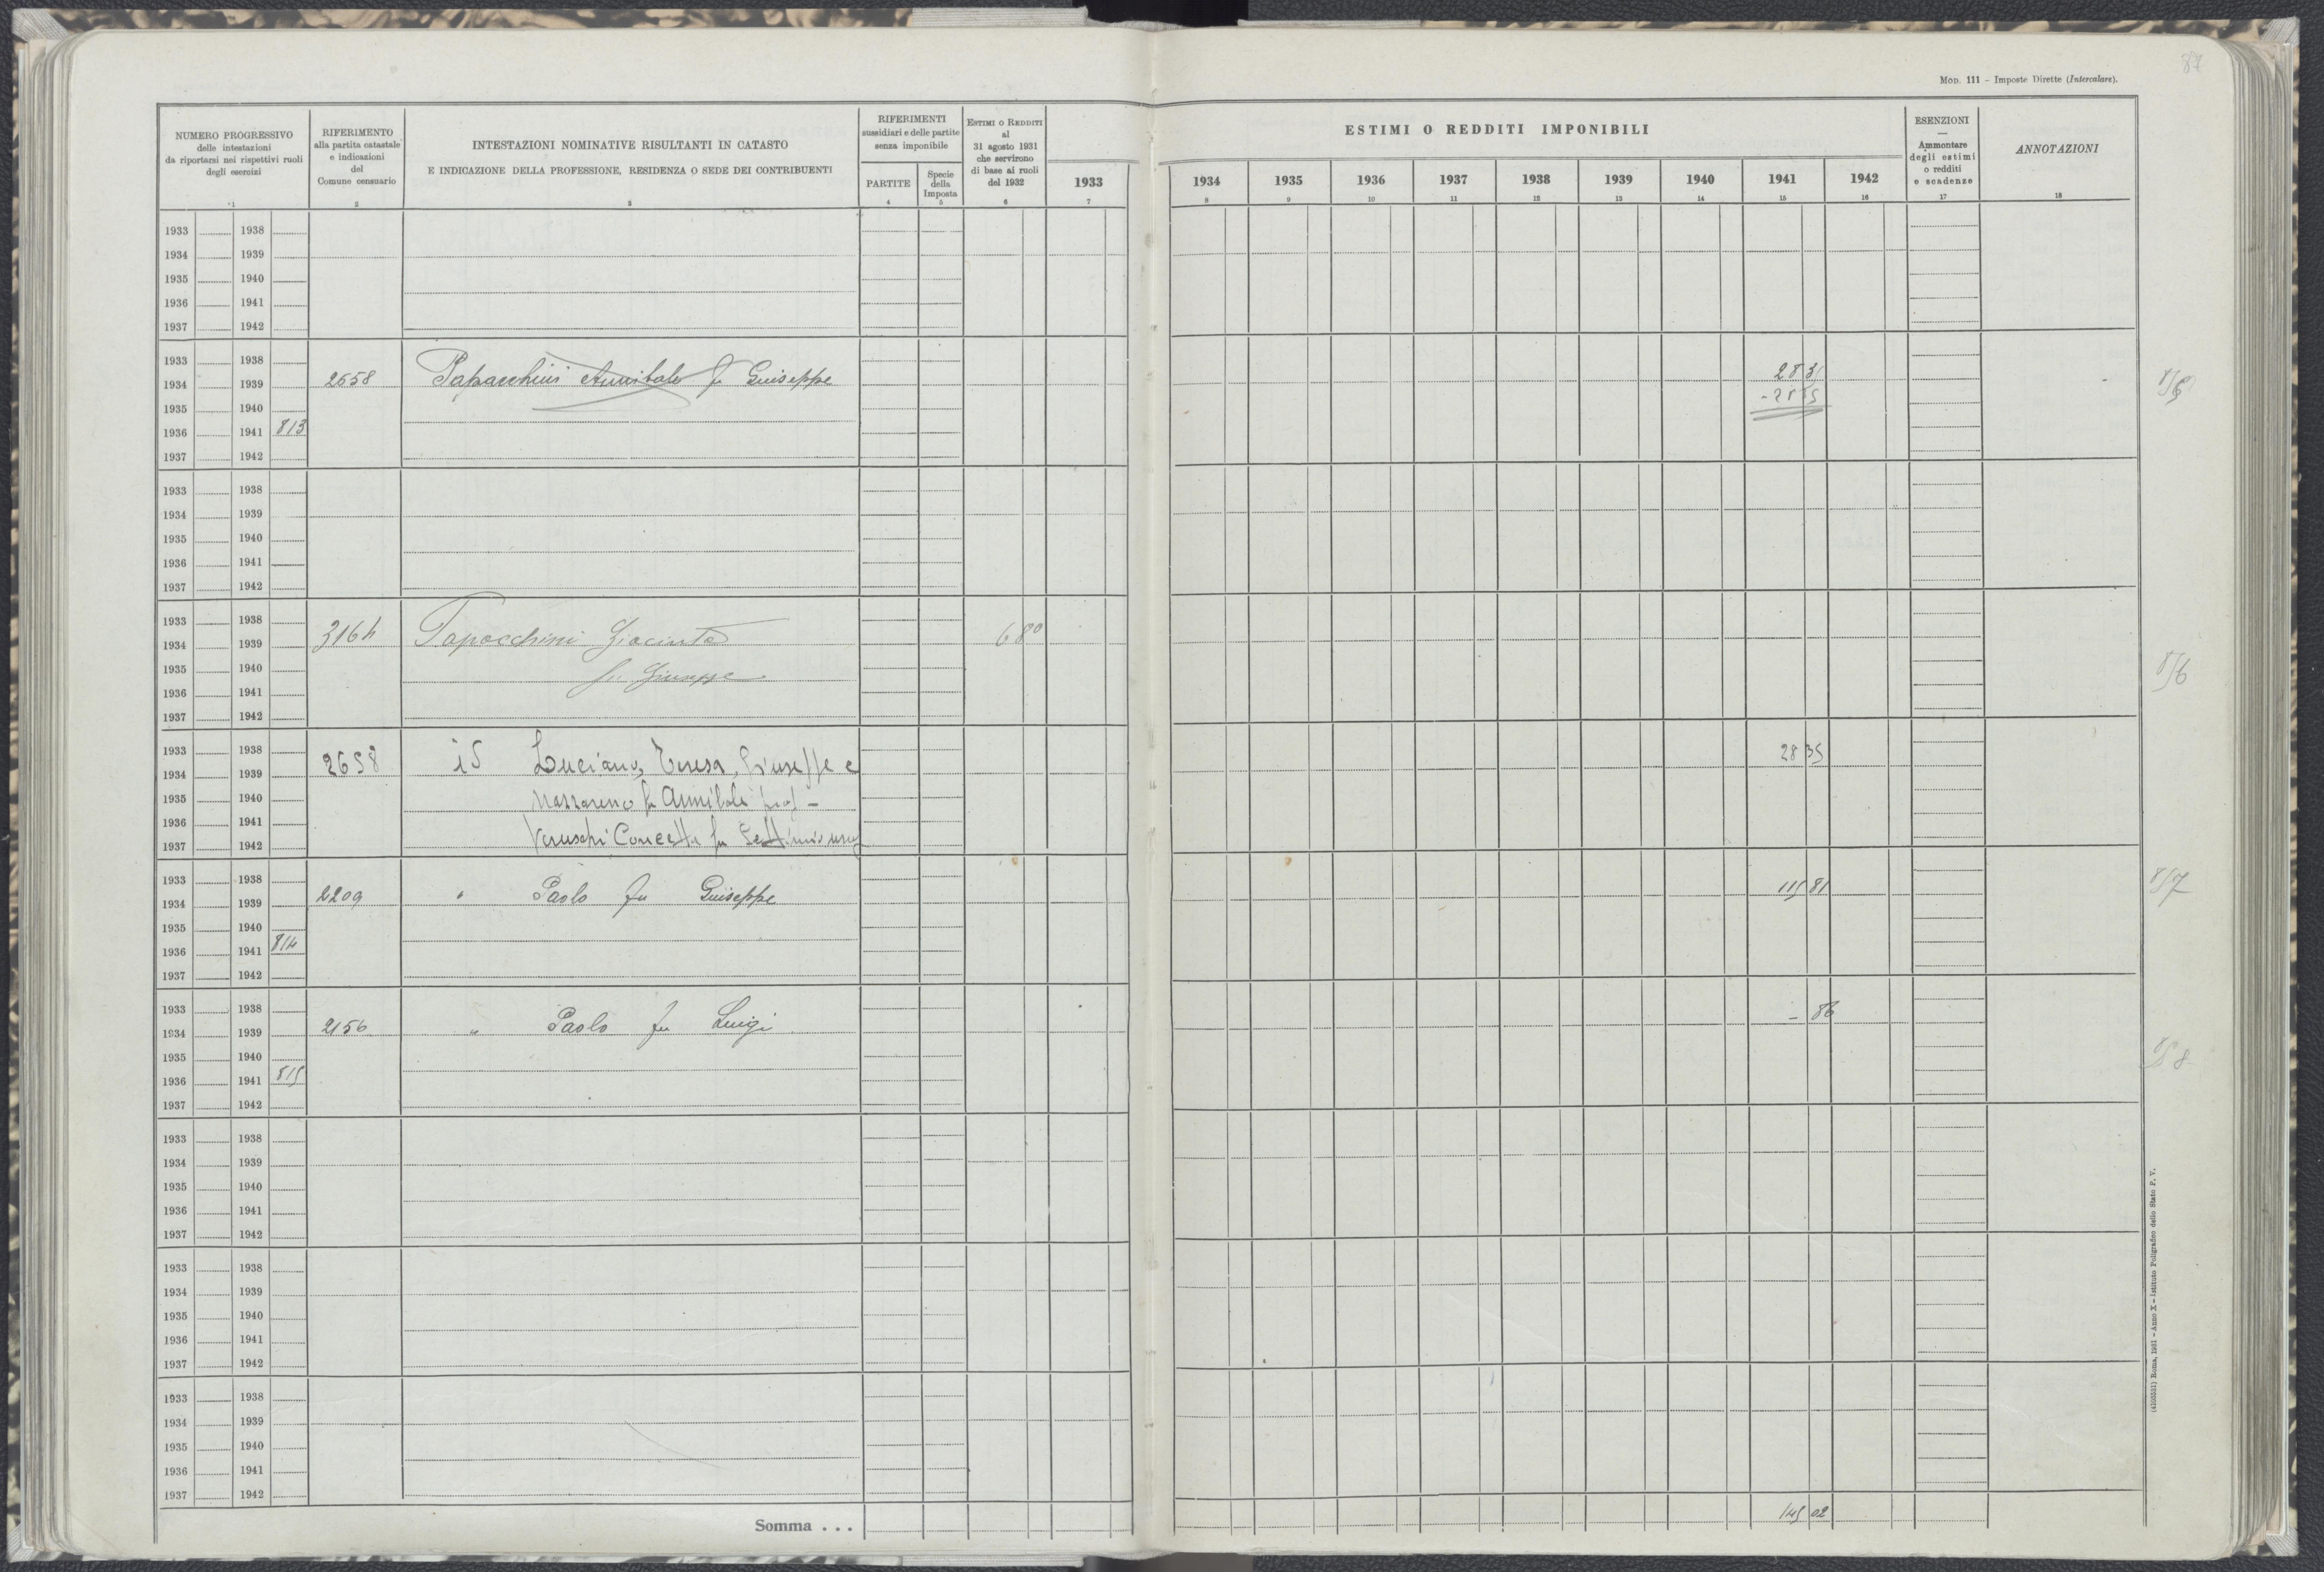 87
MOD. 111 - Imposte Dirette (Intercalare).
NUMERO PROGRESSIVO
delle intestazioni
da riportarsi nei rispettivi ruoli
degli esercizi
1
RIFERIMENTO
alla partita catastale
e indicazioni
del
Comune censuario
2
INTESTAZIONI NOMINATIVE RISULTANTI IN CATASTO
E INDICAZIONE DELLA PROFESSIONE, RESIDENZA O SEDE DEI CONTRIBUENTI
3
RIFERIMENTI
sussidiari e delle partite
senza imponibile
PARTITE
4
Specie
della
Imposta
5
ESTIMI O REDDITI
al
31 agosto 1931
che servirono
di base ai ruoli
del 1932
6
1933
7
ESTIMI O REDDITI IMPONIBILI
1934 1935 1936 1937 1938 1939 1940 1941 1942
8 9 10 11 12 13 14 15 16
ESENZIONI
—
Ammontare
degli estimi
o redditi
e scadenze
17
ANNOTAZIONI
18
1933 1938
1934 1939
1935 1940
1936 1941
1937 1942
1933 1938
1934 1939 2658 Papacchini Annibale fu Giuseppe 28 31
1935 1940
1936 1941 813
1937 1942
1933 1938
1934 1939
1935 1940
1936 1941
1937 1942
1933 1938
1934 1939 3164 Papacchini Giacinta 6 80
1935 1940 fu Giuseppe
1936 1941
1937 1942
1933 1938
1934 1939 2658 Luciano, Teresa, Giuseppe e 28 35
1935 1940 Nazzareno fu Annibale
1936 1941
1937 1942 Concetta fu Settimio
1933 1938
1934 1939 2209 " Paolo fu Giuseppe 115 81
1935 1940
1936 1941 814
1937 1942
1933 1938
1934 1939 2156 " Paolo fu Luigi - 86
1935 1940
1936 1941 815
1937 1942
1933 1938
1934 1939
1935 1940
1936 1941
1937 1942
1933 1938
1934 1939
1935 1940
1936 1941
1937 1942
1933 1938
1934 1939
1935 1940
1936 1941
1937 1942
Somma . . . 145 02
(4193531) Roma, 1931 - Anno X - Istituto Poligrafico dello Stato P. V.